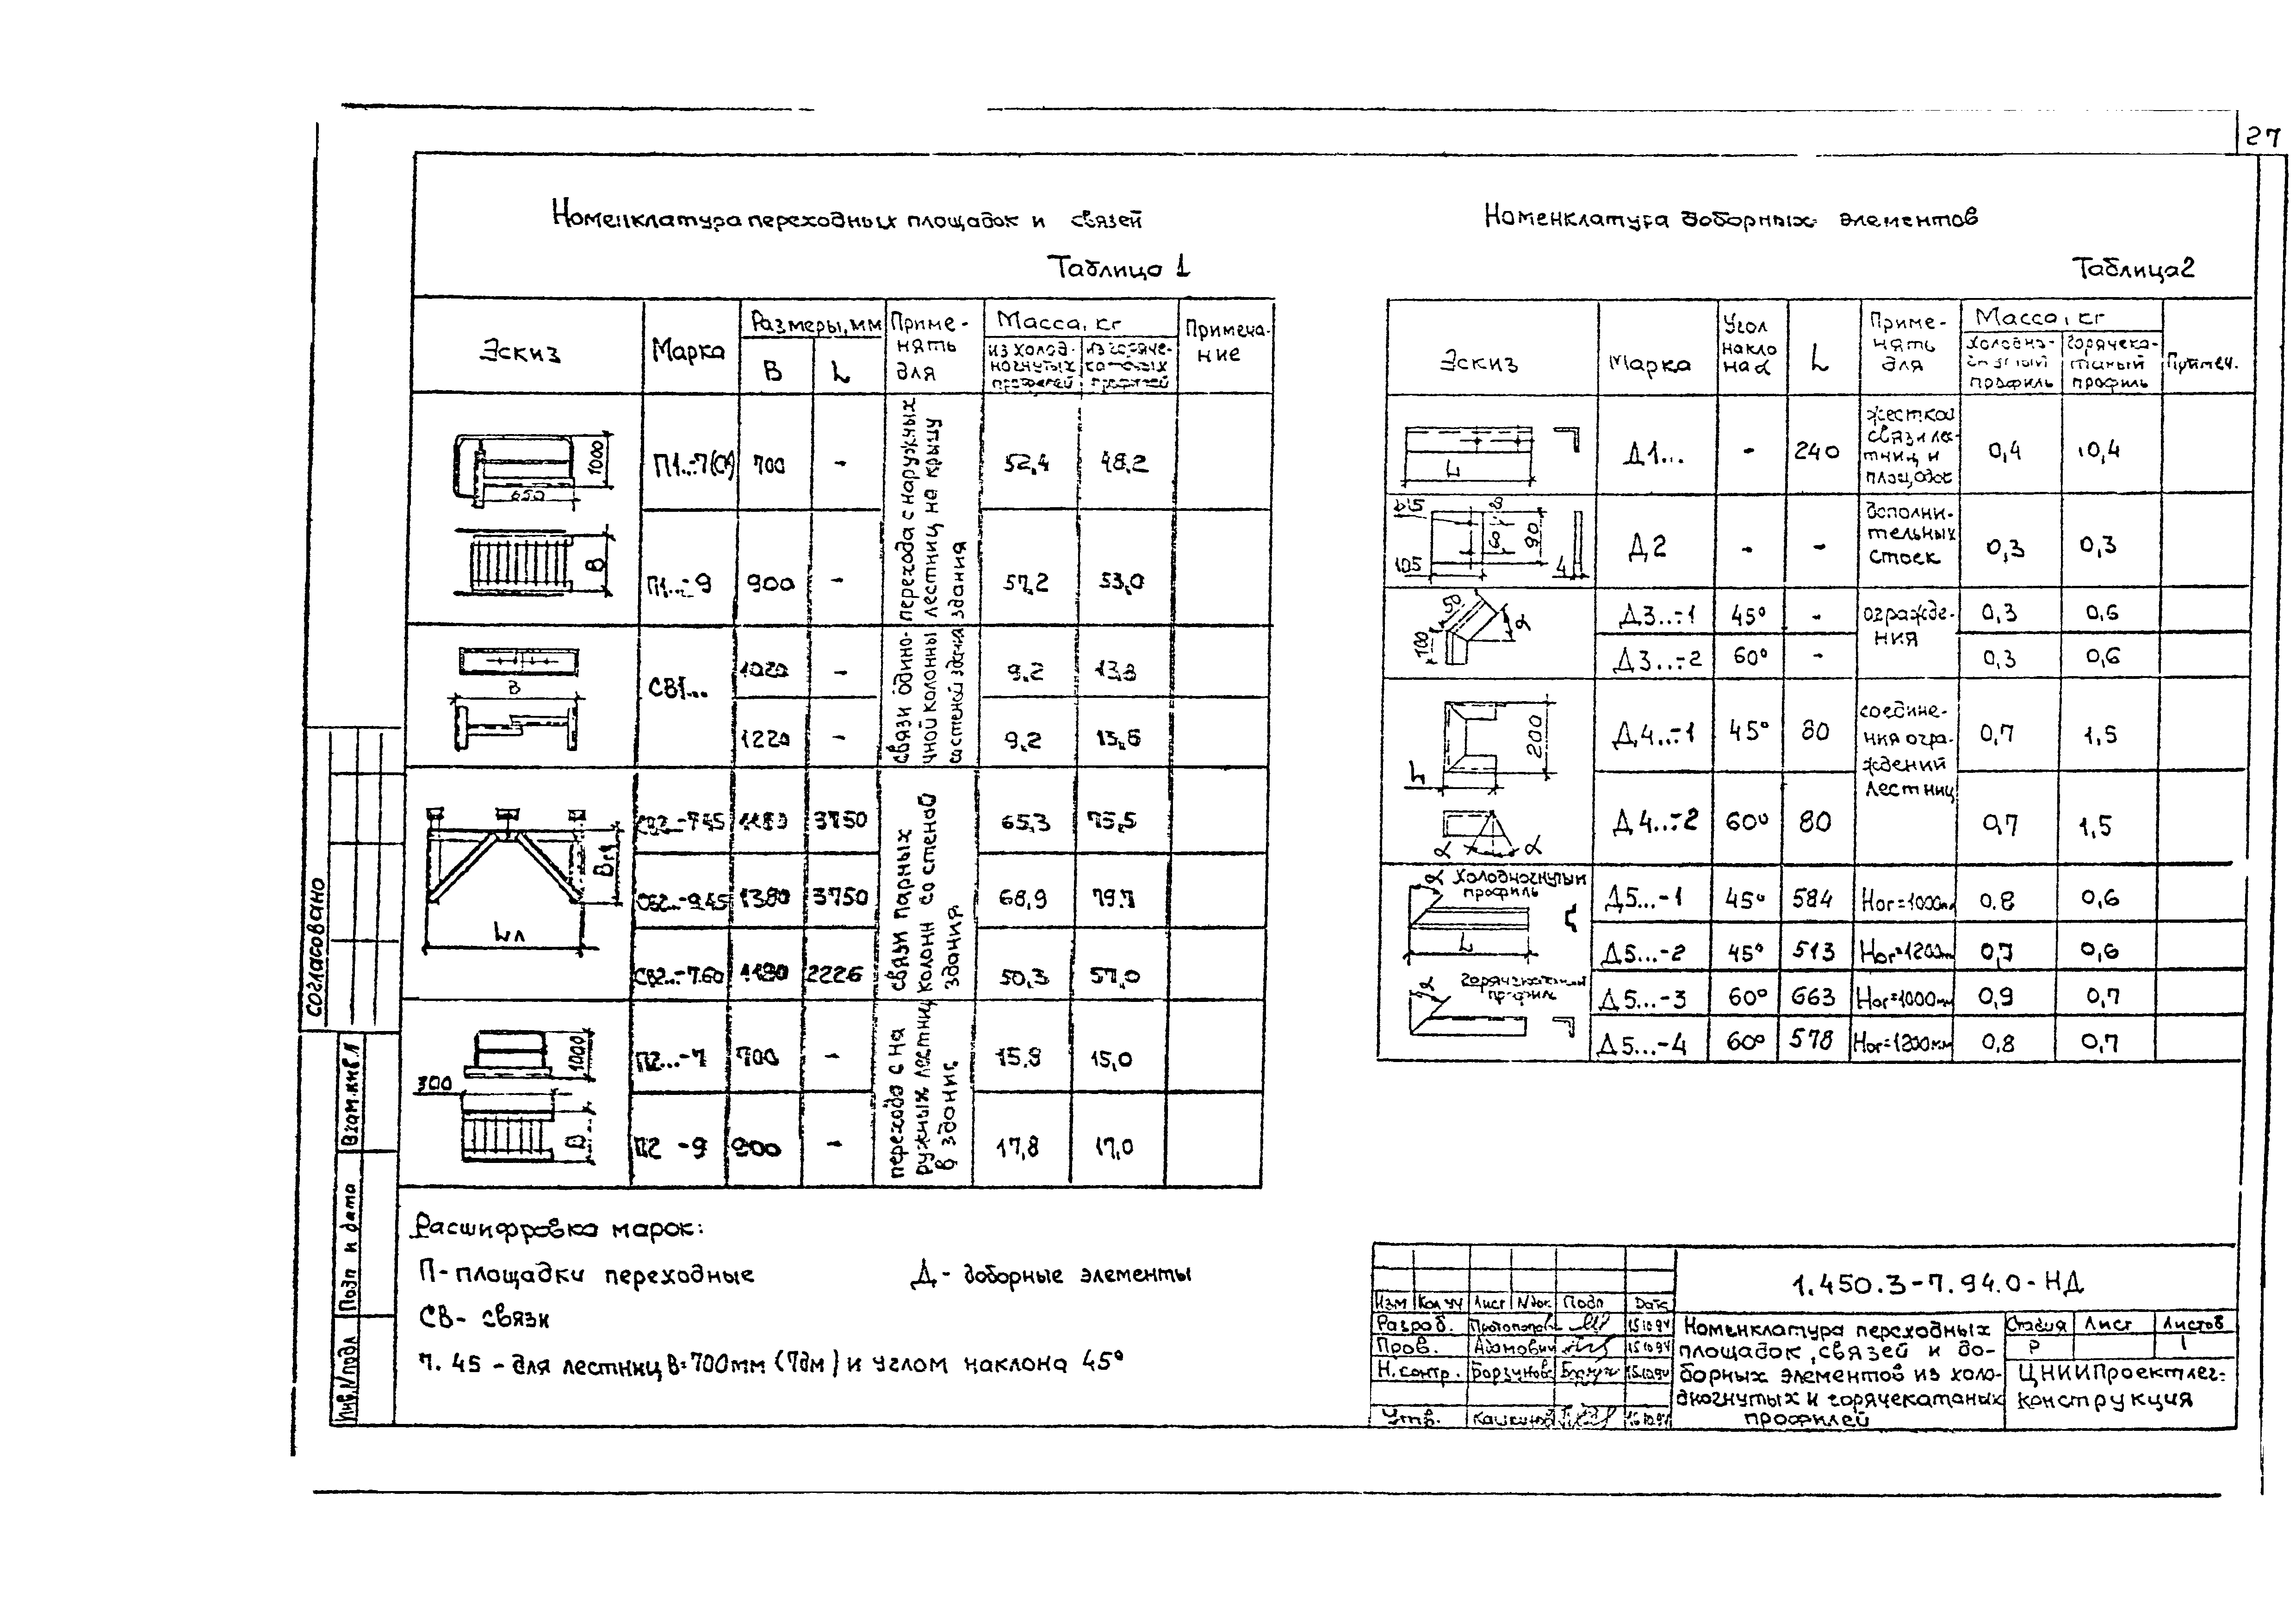 27
Номенклатура переходных площадок и связей
Таблица 1
Эскиз Марка Размеры, мм Приме- Масса, кг Примеча-
нять ние
для
B L из холод- из горяче-
ногнутых катаных
профилей профилей
1000
650
B
П1..-7(С) 700 - 52,4 48,2
П1..-9 900 - 57,2 53,0
перехода с наружных
лестниц на крышу
здания
B
СВ1... 1020 - 9.2
1220 - 9.2
связи одино-
чной колонны
со стеной здания
Lл
СВ2..-7.45 1180 3750 65,3 75,5
СВ2..-9.45 1380 3750 68,9
СВ2..-7.60 1180 2226 50,3 57,0
связи парных
колонн со стеной
здания
1000
300
B
П2...-7 700 - 15,0
П2 -9 900 - 17,8 17,0
перехода с на
ружных лестниц
в здание
Расшифровка марок:
П-площадки переходные Д- доборные элементы
СВ- связи
7. 45 - для лестниц В=700мм (7дм) и углом наклона 45°
Номенклатура доборных элементов
Таблица 2
Эскиз Марка Угол L Приме- Масса, кг Примеч.
накло нять
на α для
холодно- горячека-
гнутый таный
профиль профиль
L
Д1... - 240 жесткой 0,4 0,4
связи ле-
тниц и
площадок
105 60 90 4
Д2 - - дополни- 0,3 0,3
тельных
стоек
50 100 α
Д3...-1 45° - огражде- 0,3 0,6
ния
Д3...-2 60° - 0,3 0,6
200 L α α
Д4...-1 45° 80 соедине- 0,7 1,5
ния огра-
ждений
лестниц
Д4...-2 60° 80 0,7 1,5
α Холодногнутый
профиль
L
α Горячекатаный
профиль
Д5...-1 45° 584 Hог=1000мм 0.8 0,6
Д5...-2 45° 513 Hог=1200мм 0,7 0,6
Д5...-3 60° 663 Hог=1000мм 0,9 0,7
Д5...-4 60° 578 Hог=1200мм 0,8 0,7
Согласовано
Взам.инв.N
Подп и дата
Инв.N подл
1.450.3-7.94.0-НД
Изм Кол.уч Лист Nдок. Подп Дата
Разраб. 15.10.94
Пров. Адамович 15.10.94
Н.контр. 15.10.94
Утв. 15.10.94
Номенклатура переходных
площадок, связей и до-
борных элементов из холо-
дногнутых и горячекатаных
профилей
Стадия Лист Листов
Р 1
ЦНИИПроектлег-
конструкция